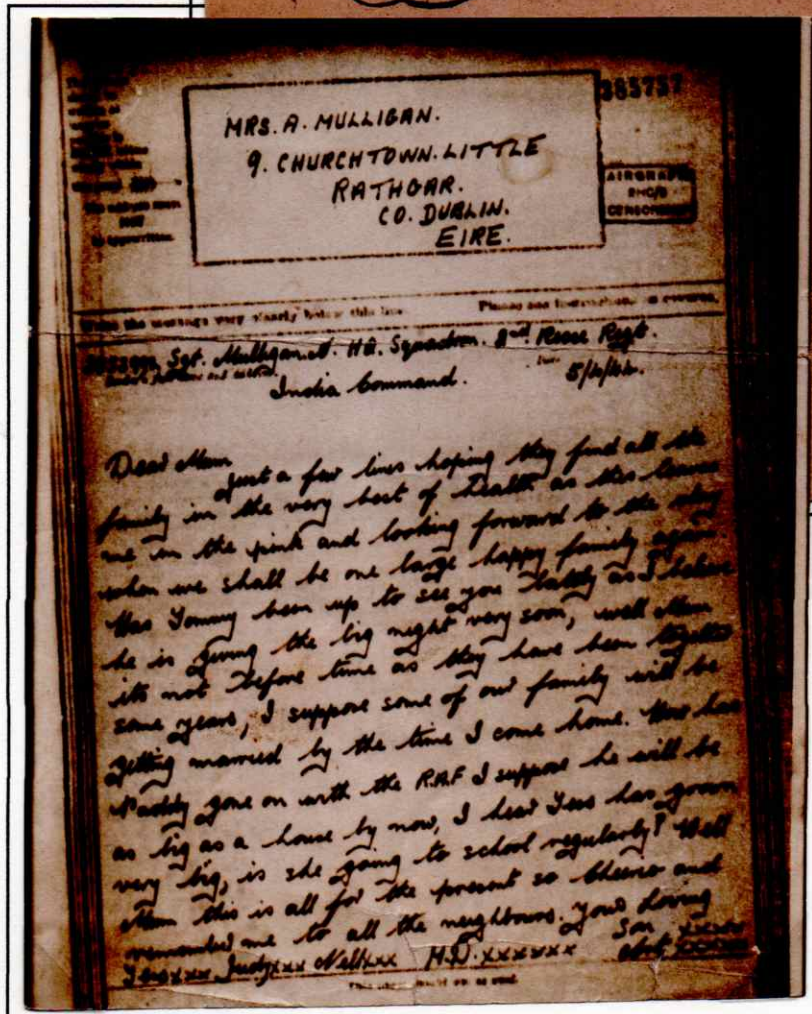 385757
MRS. A. MULLIGAN.
9. CHURCHTOWN. LITTLE
RATHGAR.
CO. DUBLIN.
EIRE.
AIRGRAPH
CENSORED
Write the message very clearly below this line.
Please see instructions on reverse.
Sgt. Mulligan. A. HQ. Squadron. 2nd Recce Regt.
India Command. 5/4/44.
Dear Mum
just a few lines hoping they find all the
family in the very best of health as this leaves
me in the pink and looking forward to the day
when we shall be one large happy family again
Has Tommy been up to see you lately as I believe
he is giving the big night very soon, well Mum
its not before time as they have been together
some years, I suppose some of our family will be
getting married by the time I come home. How has
Paddy gone on with the R.A.F I suppose he will be
as big as a house by now, I hear Tess has grown
very big, is she going to school regularly? Well
Mum this is all for the present so Cheerio and
remember me to all the neighbours. Your Loving
Son xxxxx
Tess xxx Judy xxx Nell xxx M.D. xxxxxx